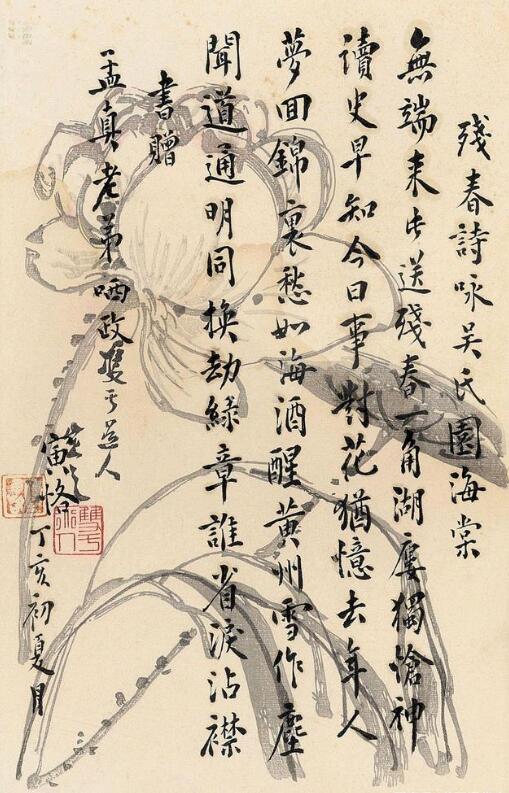 殘春詩咏吴氏園海棠
無端来此送殘春一角湖廔獨愴神
讀史早知今日事對花猶憶去年人
夢回錦裏愁如海酒醒黄州雪作塵
聞道通明同換劫緑章誰省淚沾襟
書贈
孟真老弟哂政
寅恪
丁亥初夏月